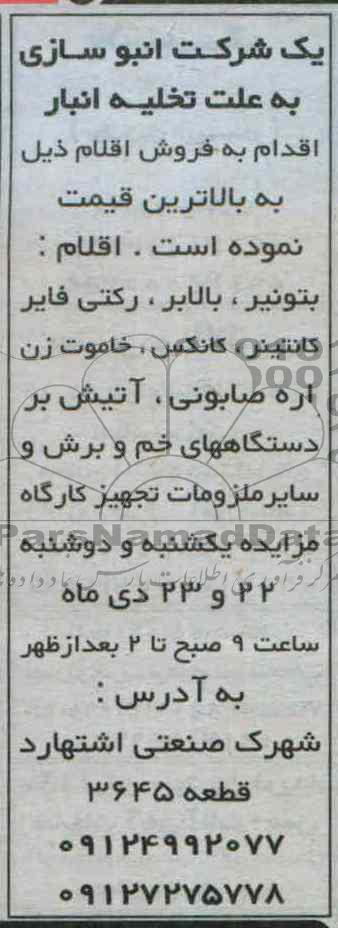 یک شرکت انبو سازی
به علت تخلیه انبار
اقدام به فروش اقلام ذیل
به بالاترین قیمت
نموده است . اقلام :
بتونیر ، بالابر ، رکتی فایر
کانتینر ، کانکس ، خاموت زن
اره صابونی ، آتیش بر
دستگاههای خم و برش و
سایر ملزومات تجهیز کارگاه
ParsNamadData
مزایده یکشنبه و دوشنبه
۲۲ و ۲۳ دی ماه
ساعت ۹ صبح تا ۲ بعدازظهر
به آدرس :
شهرک صنعتی اشتهارد
قطعه ۳۶۴۵
۰۹۱۲۴۹۹۲۰۷۷
۰۹۱۲۷۲۷۵۷۷۸